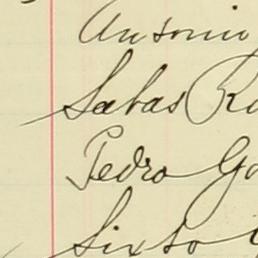 Antonio
Sabas Ro
Pedro Go
Sixto G